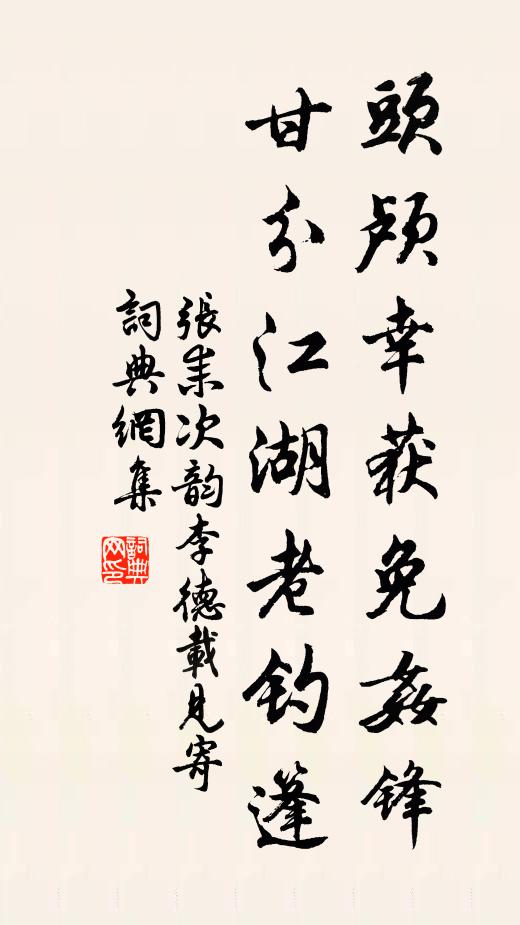 頭顱幸获免姦锋
甘分江湖老钓篷
張耒次韵李德載見寄
詞典網集
詞典网印